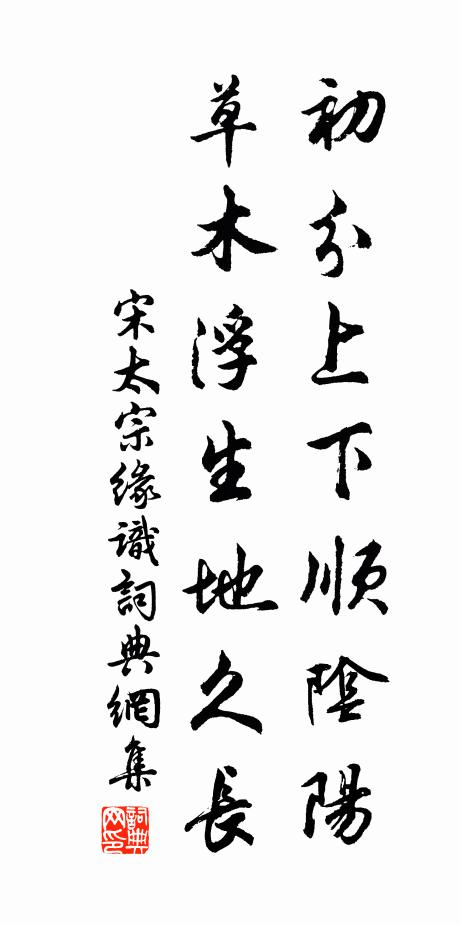 初分上下順陰陽
草木浮生地久長
宋太宗緣識詞典網集
詞典網印